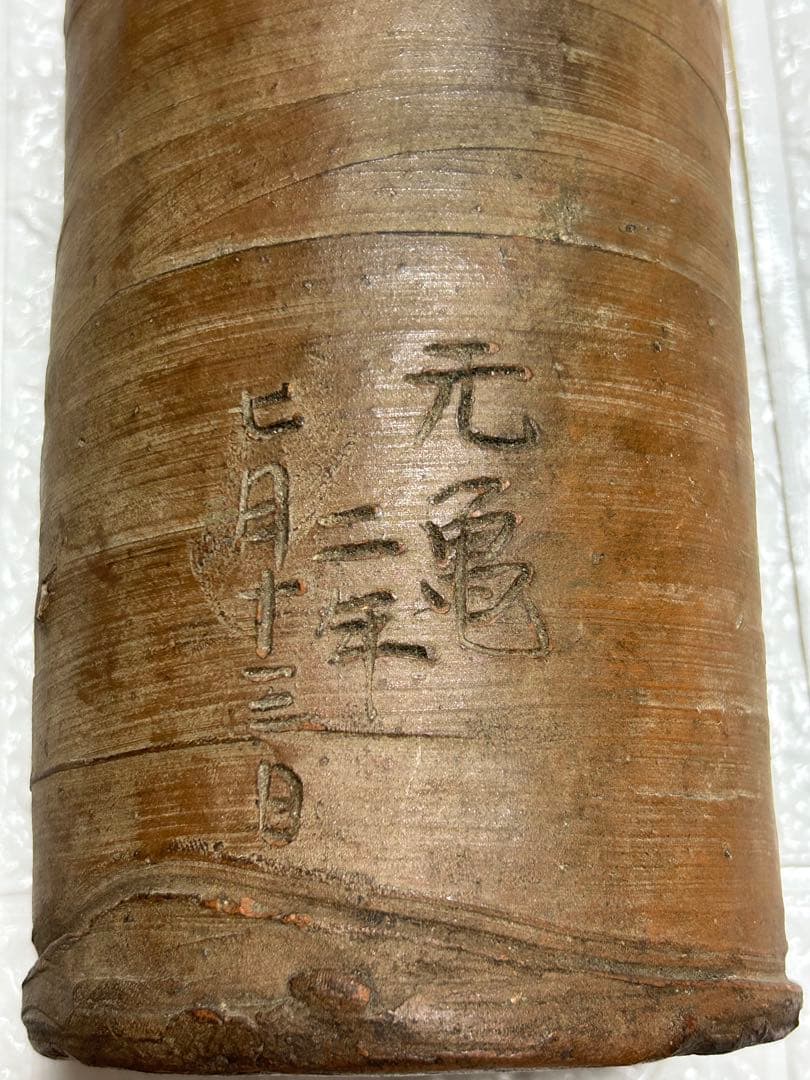 元亀
二年
七月十三日